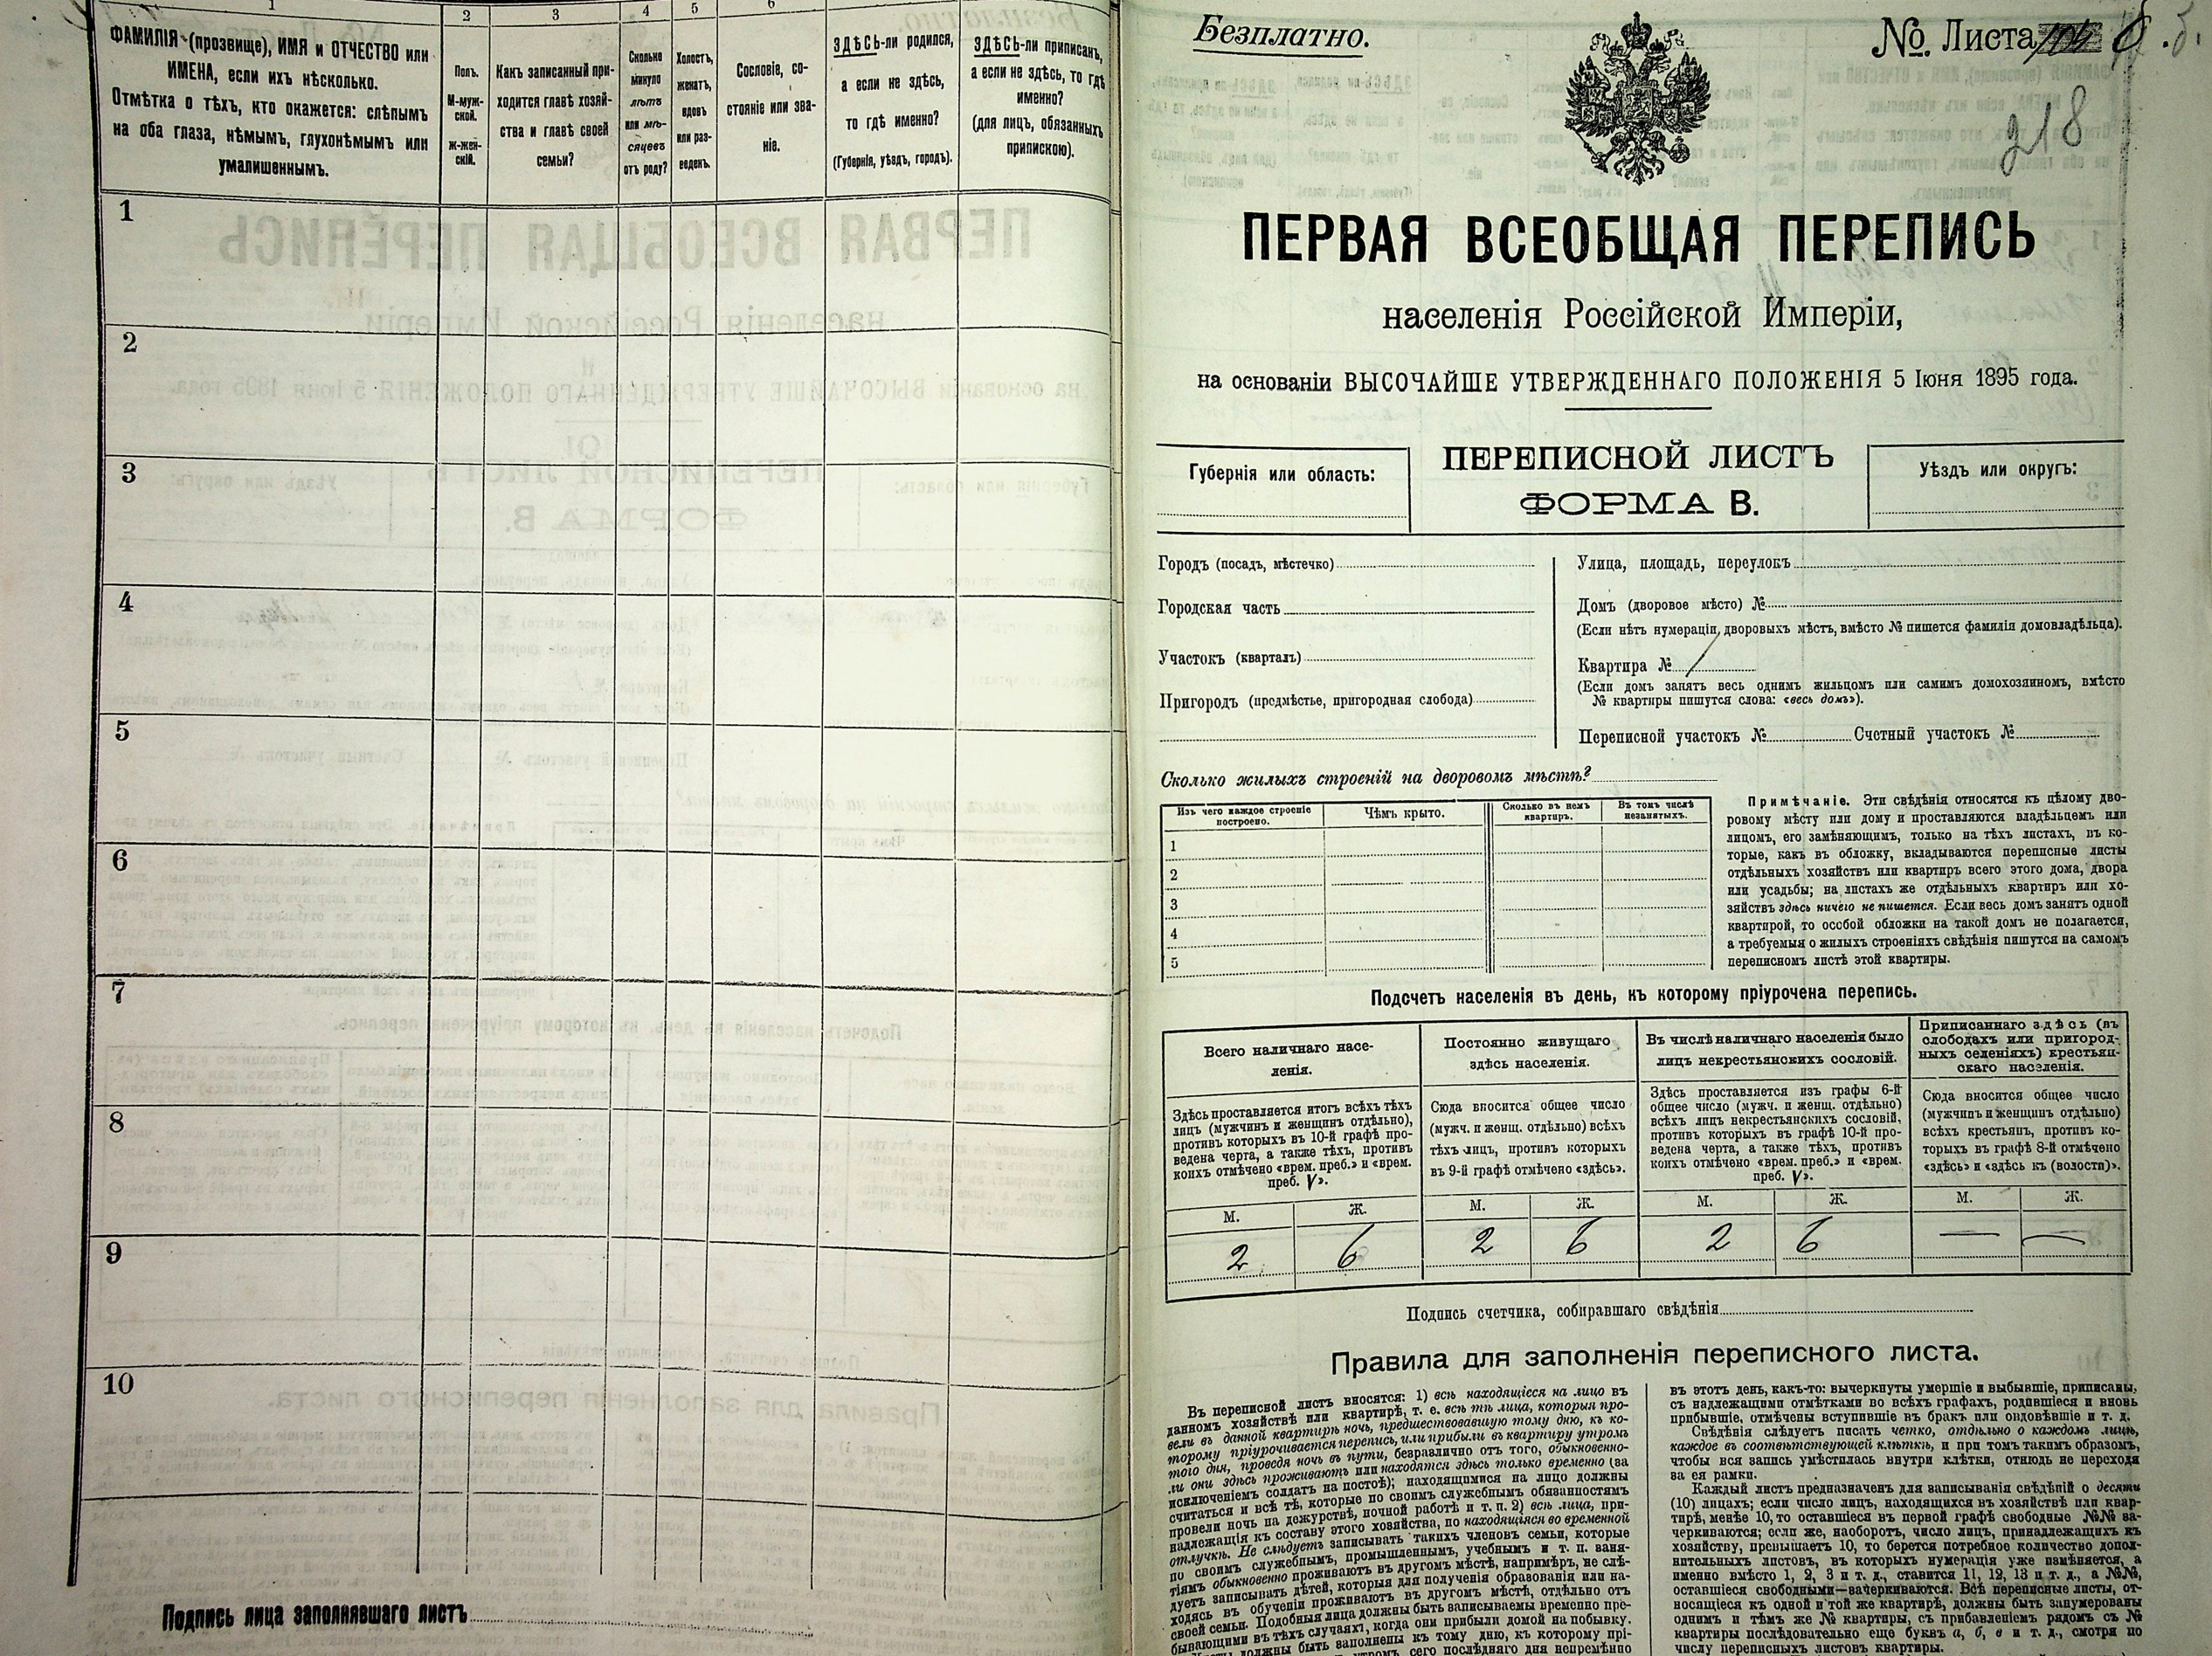 1
2
3
4
5
6
ФАМИЛІЯ (прозвище), ИМЯ и ОТЧЕСТВО или
ИМЕНА, если ихъ нѣсколько.
Отмѣтка о тѣхъ, кто окажется: слѣпымъ
на оба глаза, нѣмымъ, глухонѣмымъ или
умалишеннымъ.
Полъ.
М-муж-
ской.
ж-жен-
скій.
Какъ записанный при-
ходится главѣ хозяй-
ства и главѣ своей
семьи?
Сколько
минуло
лѣтъ
или мѣ-
сяцевъ
отъ роду?
Холостъ,
женатъ,
вдовъ
или раз-
веденъ.
Сословіе, со-
стояніе или зва-
ніе.
ЗДѢСЬ-ли родился,
а если не здѣсь,
то гдѣ именно?
(Губернія, уѣздъ, городъ).
ЗДѢСЬ-ли приписанъ,
а если не здѣсь, то гдѣ
именно?
(для лицъ, обязанныхъ
припискою).
1
2
3
4
5
6
7
8
9
10
Подпись лица заполнявшаго листъ
Безплатно.
№ Листа 6.
218
ПЕРВАЯ ВСЕОБЩАЯ ПЕРЕПИСЬ
населенія Россійской Имперіи,
на основаніи ВЫСОЧАЙШЕ УТВЕРЖДЕННАГО ПОЛОЖЕНІЯ 5 Іюня 1895 года.
Губернія или область:
ПЕРЕПИСНОЙ ЛИСТЪ
ФОРМА В.
Уѣздъ или округъ:
Городъ (посадъ, мѣстечко)
Городская часть
Участокъ (кварталъ)
Пригородъ (предмѣстье, пригородная слобода)
Улица, площадь, переулокъ
Домъ (дворовое мѣсто) №
(Если нѣтъ нумераціи дворовыхъ мѣстъ, вмѣсто № пишется фамилія домовладѣльца).
Квартира № 1
(Если домъ занятъ весь однимъ жильцомъ или самимъ домохозяиномъ, вмѣсто
№ квартиры пишутся слова: «весь домъ»).
Переписной участокъ № Счетный участокъ №
Сколько жилыхъ строеній на дворовомъ мѣстѣ?
Изъ чего каждое строеніе
построено.
Чѣмъ крыто.
Сколько въ немъ
квартиръ.
Въ томъ числѣ
незанятыхъ.
1
2
3
4
5
Примѣчаніе. Эти свѣдѣнія относятся къ цѣлому дво-
ровому мѣсту или дому и проставляются владѣльцемъ или
лицомъ, его замѣняющимъ, только на тѣхъ листахъ, въ ко-
торые, какъ въ обложку, вкладываются переписные листы
отдѣльныхъ хозяйствъ или квартиръ всего этого дома, двора
или усадьбы; на листахъ же отдѣльныхъ квартиръ или хо-
зяйствъ здѣсь ничего не пишется. Если весь домъ занятъ одной
квартирой, то особой обложки на такой домъ не полагается,
а требуемыя о жилыхъ строеніяхъ свѣдѣнія пишутся на самомъ
переписномъ листѣ этой квартиры.
Подсчетъ населенія въ день, къ которому пріурочена перепись.
Всего наличнаго насе-
ленія.
Здѣсь проставляется итогъ всѣхъ тѣхъ
лицъ (мужчинъ и женщинъ отдѣльно),
противъ которыхъ въ 10-й графѣ про-
ведена черта, а также тѣхъ, противъ
коихъ отмѣчено «врем. преб.» и «врем.
преб. V».
Постоянно живущаго
здѣсь населенія.
Сюда вносится общее число
(мужч. и женщ. отдѣльно) всѣхъ
тѣхъ лицъ, противъ которыхъ
въ 9-й графѣ отмѣчено «здѣсь».
Въ числѣ наличнаго населенія было
лицъ некрестьянскихъ сословій.
Здѣсь проставляется изъ графы 6-й
общее число (мужч. и женщ. отдѣльно)
всѣхъ лицъ некрестьянскихъ сословій,
противъ которыхъ въ графѣ 10-й про-
ведена черта, а также тѣхъ, противъ
коихъ отмѣчено «врем. преб.» и «врем.
преб. V».
Приписаннаго здѣсь (въ
слободахъ или пригород-
ныхъ селеніяхъ) крестьян-
скаго населенія.
Сюда вносится общее число
(мужчинъ и женщинъ отдѣльно)
всѣхъ крестьянъ, противъ ко-
торыхъ въ графѣ 8-й отмѣчено
«здѣсь» и «здѣсь къ (волости)».
М. Ж. М. Ж. М. Ж. М. Ж.
2 6 2 6 2 6 — —
Подпись счетчика, собиравшаго свѣдѣнія
Правила для заполненія переписного листа.
Въ переписной листъ вносятся: 1) всѣ находящіеся на лицо въ
данномъ хозяйствѣ или квартирѣ, т. е. всѣ тѣ лица, которыя про-
вели въ данной квартирѣ ночь, предшествовавшую тому дню, къ ко-
торому пріурочивается перепись, или прибыли въ квартиру утромъ
того дня, проведя ночь въ пути, безразлично отъ того, обыкновенно-
ли они здѣсь проживаютъ или находятся здѣсь только временно (за
исключеніемъ солдатъ на постоѣ); находящимися на лицо должны
считаться и всѣ тѣ, которые по своимъ служебнымъ обязанностямъ
провели ночь на дежурствѣ, ночной работѣ и т. п. 2) всѣ лица, при-
надлежащія къ составу этого хозяйства, но находящіяся во временной
отлучкѣ. Не слѣдуетъ записывать такихъ членовъ семьи, которые
по своимъ служебнымъ, промышленнымъ, учебнымъ и т. п. заня-
тіямъ обыкновенно проживаютъ въ другомъ мѣстѣ, напримѣръ, не слѣ-
дуетъ записывать дѣтей, которыя для полученія образованія или на-
ходясь въ обученіи проживаютъ въ другомъ мѣстѣ, отдѣльно отъ
своей семьи. Подобныя лица должны быть записываемы временно пре-
бывающими въ тѣхъ случаяхъ, когда они прибыли домой на побывку.
должны быть заполнены къ тому дню, къ которому прі-
утромъ сего послѣдняго дня непремѣнно
въ этотъ день, какъ-то: вычеркнуты умершіе и выбывшіе, приписаны,
съ надлежащими отмѣтками во всѣхъ графахъ, родившіеся и вновь
прибывшіе, отмѣчены вступившіе въ бракъ или овдовѣвшіе и т. д.
Свѣдѣнія слѣдуетъ писать четко, отдѣльно о каждомъ лицѣ,
каждое въ соотвѣтствующей клѣткѣ, и при томъ такимъ образомъ,
чтобы вся запись умѣстилась внутри клѣтки, отнюдь не переходя
за ея рамки.
Каждый листъ предназначенъ для записыванія свѣдѣній о десяти
(10) лицахъ; если число лицъ, находящихся въ хозяйствѣ или квар-
тирѣ, менѣе 10, то оставшіеся въ первой графѣ свободные №№ за-
черкиваются; если же, наоборотъ, число лицъ, принадлежащихъ къ
хозяйству, превышаетъ 10, то берется потребное количество допол-
нительныхъ листовъ, въ которыхъ нумерація уже измѣняется, а
именно вмѣсто 1, 2, 3 и т. д., ставится 11, 12, 13 и т. д., а №№,
оставшіеся свободными—зачеркиваются. Всѣ переписные листы, от-
носящіеся къ одной и той же квартирѣ, должны быть занумерованы
однимъ и тѣмъ же № квартиры, съ прибавленіемъ рядомъ съ №
квартиры послѣдовательно еще буквъ а, б, в и т. д., смотря по
числу переписныхъ листовъ квартиры.